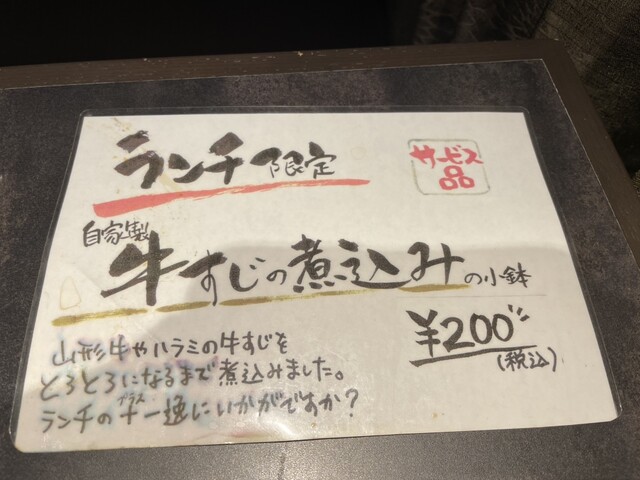 ランチ限定
サービス
品
自家製
牛すじの煮込みの小鉢
¥200
(税込)
山形牛やハラミの牛すじを
とろとろになるまで煮込みました。
プラス
ランチの+一逸にいかがですか?